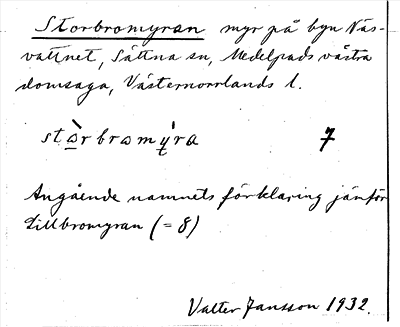 Storbromyran myr på byn Näs-
vattnet, Sättna sn, Medelpads västra
domsaga, Västernorrlands l.
stàrbromýra 7
Angående namnets förklaring jämför
Lillbromyran (= 8)
Valter Jansson 1932.